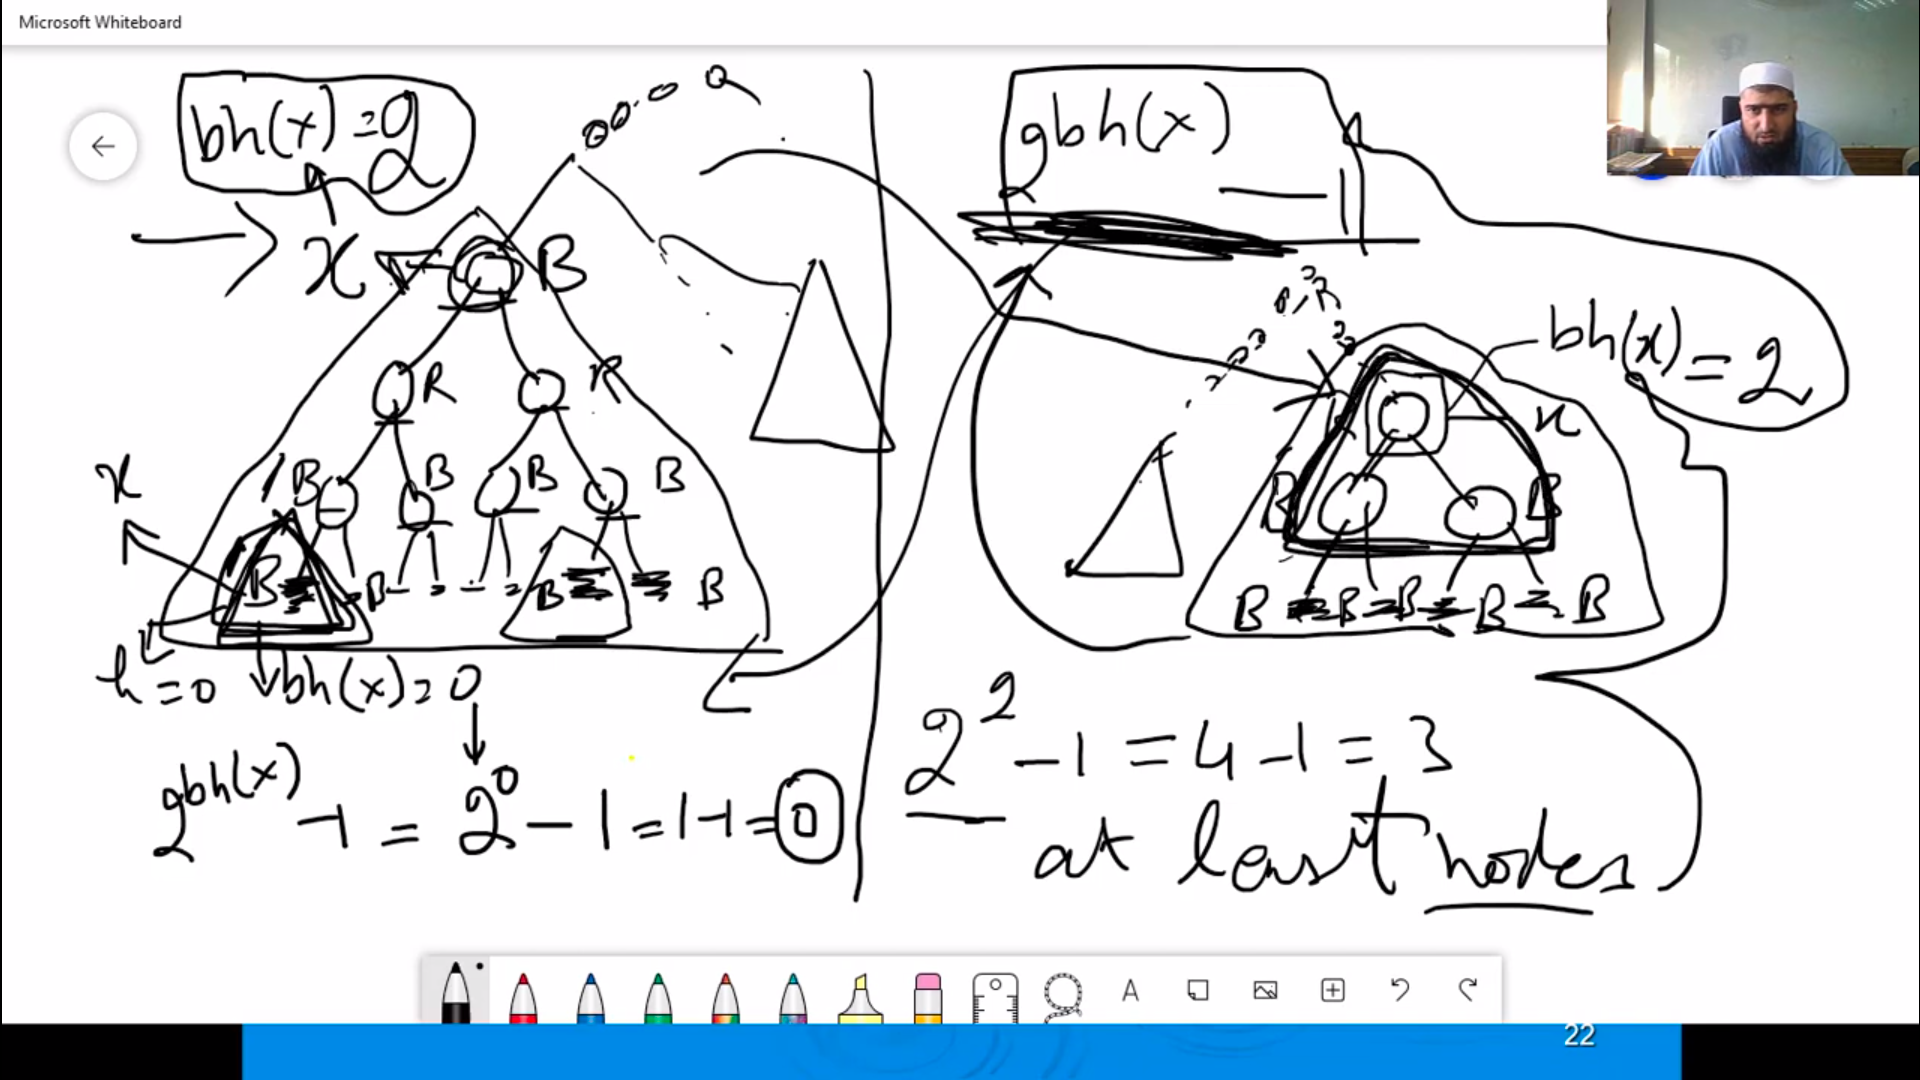 Microsoft Whiteboard
bh(x) = 2
x B
R R
B B B B
x
B B B B
h = 0 bh(x) = 0
2^bh(x) - 1 = 2^0 - 1 = 1-1 = 0
2^bh(x) - 1
R
bh(x) = 2
x
B B
B B B B B
2^2 - 1 = 4 - 1 = 3
at least nodes
A
22